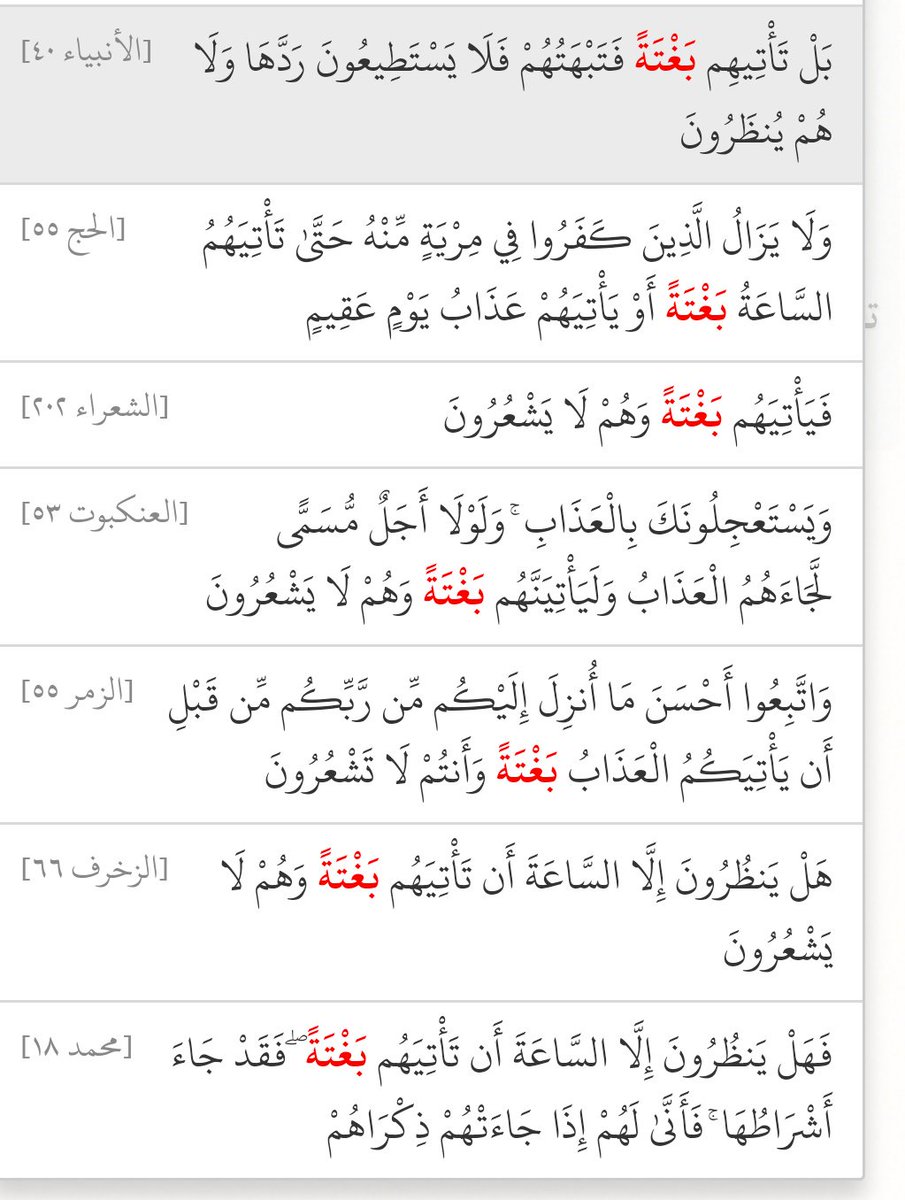 بَلْ تَأْتِيهِم بَغْتَةً فَتَبْهَتُهُمْ فَلَا يَسْتَطِيعُونَ رَدَّهَا وَلَا [الأنبياء ٤٠]
هُمْ يُنظَرُونَ
وَلَا يَزَالُ الَّذِينَ كَفَرُوا فِي مِرْيَةٍ مِّنْهُ حَتَّىٰ تَأْتِيَهُمُ [الحج ٥٥]
السَّاعَةُ بَغْتَةً أَوْ يَأْتِيَهُمْ عَذَابُ يَوْمٍ عَقِيمٍ
فَيَأْتِيَهُم بَغْتَةً وَهُمْ لَا يَشْعُرُونَ [الشعراء ٢٠٢]
وَيَسْتَعْجِلُونَكَ بِالْعَذَابِ ۚ وَلَوْلَا أَجَلٌ مُّسَمًّى [العنكبوت ٥٣]
لَّجَاءَهُمُ الْعَذَابُ وَلَيَأْتِيَنَّهُم بَغْتَةً وَهُمْ لَا يَشْعُرُونَ
وَاتَّبِعُوا أَحْسَنَ مَا أُنزِلَ إِلَيْكُم مِّن رَّبِّكُم مِّن قَبْلِ [الزمر ٥٥]
أَن يَأْتِيَكُمُ الْعَذَابُ بَغْتَةً وَأَنتُمْ لَا تَشْعُرُونَ
هَلْ يَنظُرُونَ إِلَّا السَّاعَةَ أَن تَأْتِيَهُم بَغْتَةً وَهُمْ لَا [الزخرف ٦٦]
يَشْعُرُونَ
فَهَلْ يَنظُرُونَ إِلَّا السَّاعَةَ أَن تَأْتِيَهُم بَغْتَةً ۖ فَقَدْ جَاءَ [محمد ١٨]
أَشْرَاطُهَا ۚ فَأَنَّىٰ لَهُمْ إِذَا جَاءَتْهُمْ ذِكْرَاهُمْ